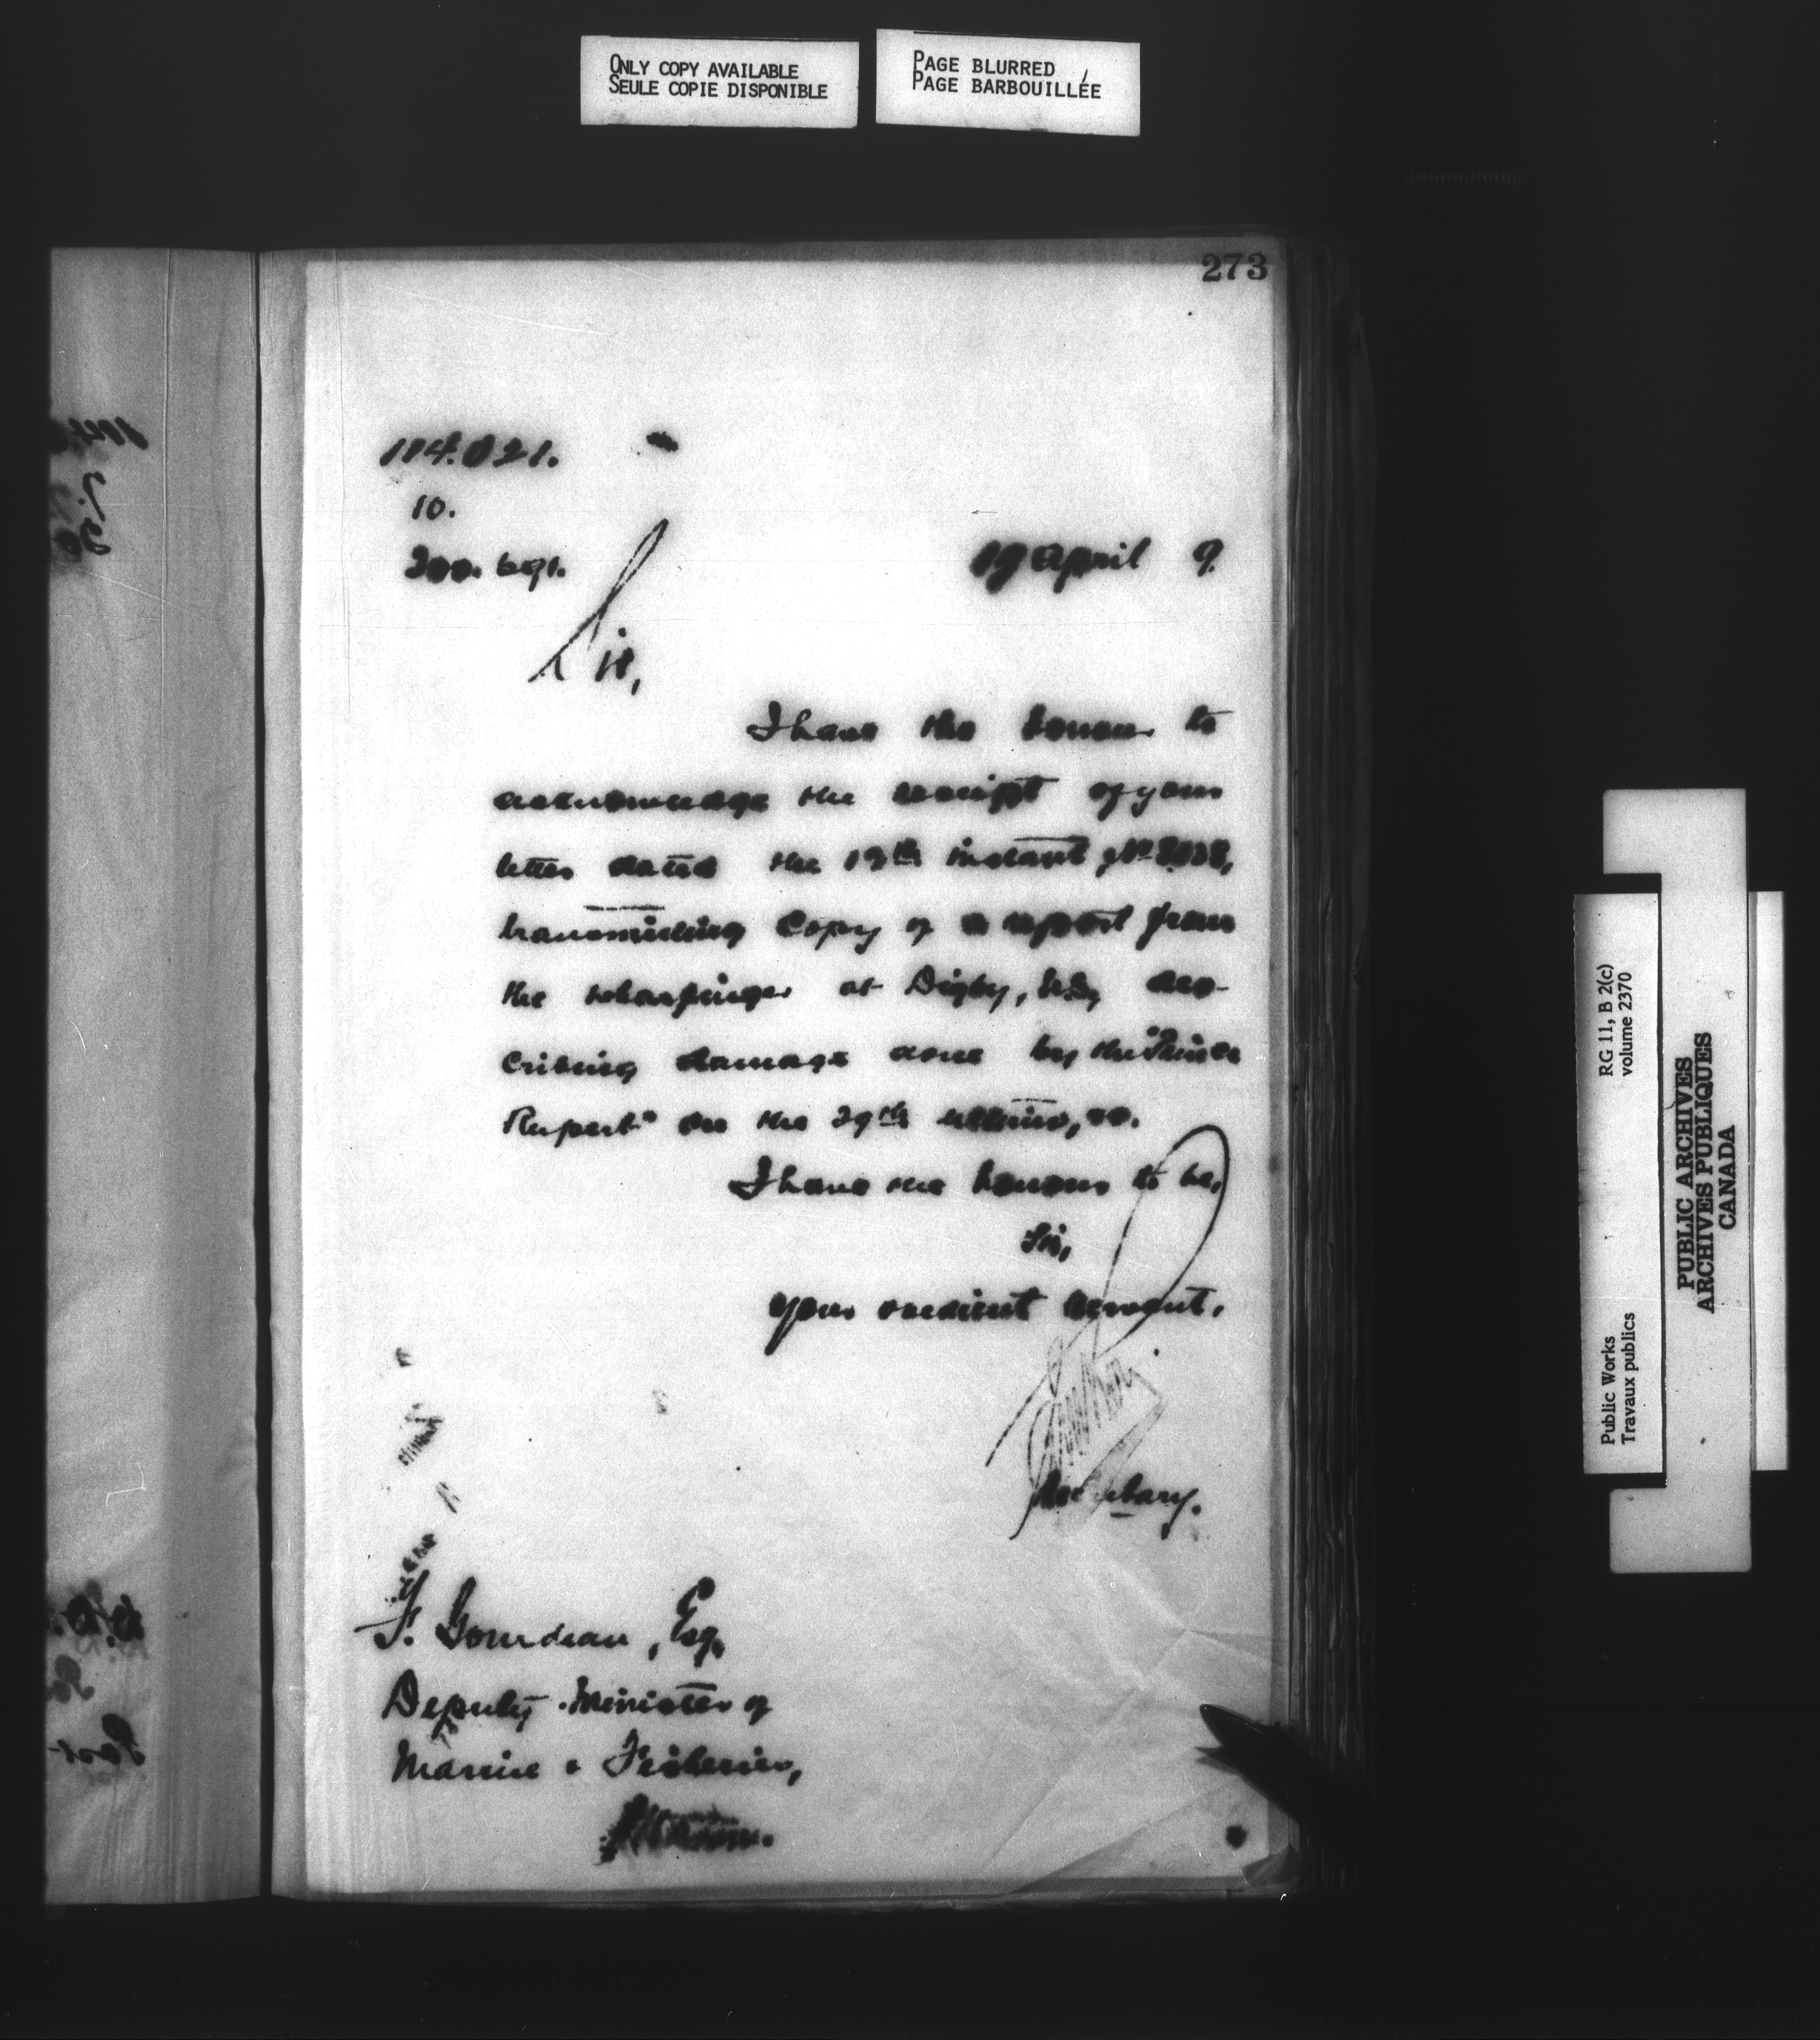 ONLY COPY AVAILABLE
SEULE COPIE DISPONIBLE
PAGE BLURRED
PAGE BARBOUILLÉE
273
114.021.
10.
200. 691.
19 April 9.
Sir,
I have the honour to
acknowledge the receipt of your
letter dated the 19th instant, No
transmitting Copy of a report from
the wharfinger at Digby, N.S., des-
cribing damage done by the "Prince
Rupert" on the 29th ultimo, &c.
I have the honour to be,
Sir,
your obedient servant,
Secretary.
F. Gourdeau, Esq.
Deputy Minister of
Marine & Fisheries,
Ottawa.
RG 11, B 2(c)
volume 2370
Public Works
Travaux publics
PUBLIC ARCHIVES
ARCHIVES PUBLIQUES
CANADA